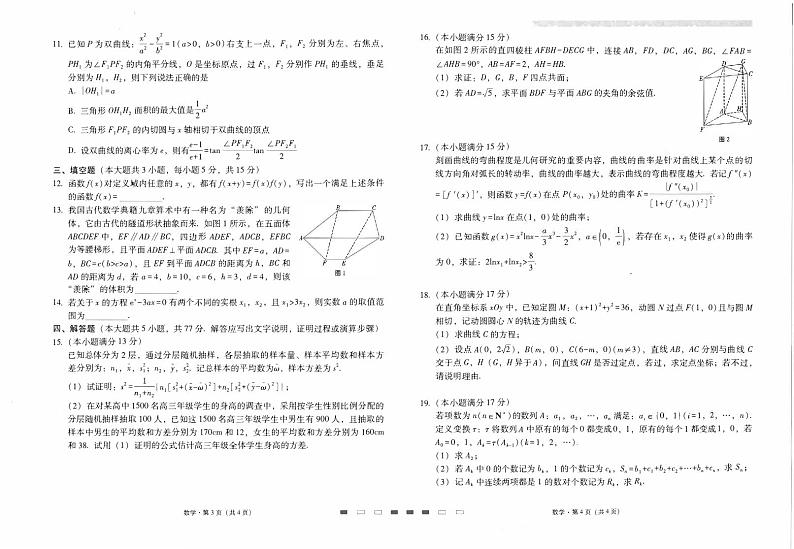 11. 已知 P 为双曲线：x²/a²-y²/b²=1(a>0, b>0) 右支上一点，F₁，F₂ 分别为左、右焦点，
PH₁ 为∠F₁PF₂ 的内角平分线，O 是坐标原点，过 F₁，F₂ 分别作 PH₁ 的垂线，垂足
分别为 H₁，H₂，则下列说法正确的是
A. |OH₁|=a
B. 三角形 OH₁H₂ 面积的最大值是 1/2 a²
C. 三角形 F₁PF₂ 的内切圆与 x 轴相切于双曲线的顶点
D. 设双曲线的离心率为 e，则有 (e-1)/(e+1)=tan ∠PF₁F₂/2 tan ∠PF₂F₁/2
三、填空题（本大题共 3 小题，每小题 5 分，共 15 分）
12. 函数 f(x) 对定义域内任意的 x，y，都有 f(x+y)=f(x)f(y)，写出一个满足上述条件
的函数 f(x)=________.
13. 我国古代数学典籍九章算术中有一种名为“羡除”的几何
体，它由古代的隧道形状抽象而来. 如图 1 所示，在五面体
ABCDEF 中，EF∥AD∥BC，四边形 ADEF，ADCB，EFBC
为等腰梯形，且平面 ADEF⊥平面 ADCB. 其中 EF=a，AD=
b，BC=c(b>c>a)，且 EF 到平面 ADCB 的距离为 h，BC 和
AD 的距离为 d，若 a=4，b=10，c=6，h=3，d=4，则该
“羡除”的体积为________.
A
B
C
D
E
F
图 1
14. 若关于 x 的方程 eˣ-3ax=0 有两个不同的实根 x₁，x₂，且 x₁>3x₂，则实数 a 的取值范
围为________.
四、解答题（本大题共 5 小题，共 77 分. 解答应写出文字说明，证明过程或演算步骤）
15.（本小题满分 13 分）
已知总体分为 2 层，通过分层随机抽样，各层抽取的样本量、样本平均数和样本方
差分别为：n₁，x̄，s₁²；n₂，ȳ，s₂². 记总样本的平均数为 ω̄，样本方差为 s².
（1）试证明：s²=1/(n₁+n₂) {n₁[s₁²+(x̄-ω̄)²]+n₂[s₂²+(ȳ-ω̄)²]}；
（2）在对某高中 1500 名高三年级学生的身高的调查中，采用按学生性别比例分配的
分层随机抽样抽取 100 人，已知这 1500 名高三年级学生中男生有 900 人，且抽取的
样本中男生的平均数和方差分别为 170cm 和 12，女生的平均数和方差分别为 160cm
和 38. 试用（1）证明的公式估计高三年级全体学生身高的方差.
数学·第 3 页（共 4 页）
16.（本小题满分 15 分）
在如图 2 所示的直四棱柱 AFBH-DECG 中，连接 AB，FD，DC，AG，BG，∠FAB=
∠AHB=90°，AB=AF=2，AH=HB.
（1）求证：D，G，B，F 四点共面；
（2）若 AD=√5，求平面 BDF 与平面 ABG 的夹角的余弦值.
D
G
E
C
A
H
F
B
图 2
17.（本小题满分 15 分）
刻画曲线的弯曲程度是几何研究的重要内容，曲线的曲率是针对曲线上某个点的切
线方向对弧长的转动率，曲线的曲率越大，表示曲线的弯曲程度越大. 若记 f″(x)
=[f′(x)]′，则函数 y=f(x) 在点 P(x₀，y₀) 处的曲率 K=|f″(x₀)|/[1+(f′(x₀))²]^(3/2).
（1）求曲线 y=lnx 在点(1，0)处的曲率；
（2）已知函数 g(x)=x²lnx-a/3 x³-3/2 x²，a∈(0，1/e)，若存在 x₁，x₂ 使得 g(x) 的曲率
为 0，求证：2lnx₁+lnx₂>8/3.
18.（本小题满分 17 分）
在直角坐标系 xOy 中，已知定圆 M：(x+1)²+y²=36，动圆 N 过点 F(1，0)且与圆 M
相切，记动圆圆心 N 的轨迹为曲线 C.
（1）求曲线 C 的方程；
（2）设点 A(0，2√2)，B(m，0)，C(6-m，0)(m≠3)，直线 AB，AC 分别与曲线 C
交于点 G，H（G，H 异于 A），问直线 GH 是否过定点，若过，求定点坐标；若不过，
请说明理由.
19.（本小题满分 17 分）
若项数为 n(n∈N*)的数列 A：a₁，a₂，…，aₙ 满足：aᵢ∈{0，1}(i=1，2，…，n).
定义变换 τ：τ 将数列 A 中原有的每个 0 都变成 0，1，原有的每个 1 都变成 1，0，若
A₀=0，1，Aₖ=τ(Aₖ₋₁)(k=1，2，…).
（1）求 A₂；
（2）若 Aₖ 中 0 的个数记为 bₖ，1 的个数记为 cₖ，Sₙ=b₁+c₁+b₂+c₂+…+bₙ+cₙ，求 Sₙ；
（3）记 Aₖ 中连续两项都是 1 的数对个数记为 Rₖ，求 Rₖ.
数学·第 4 页（共 4 页）